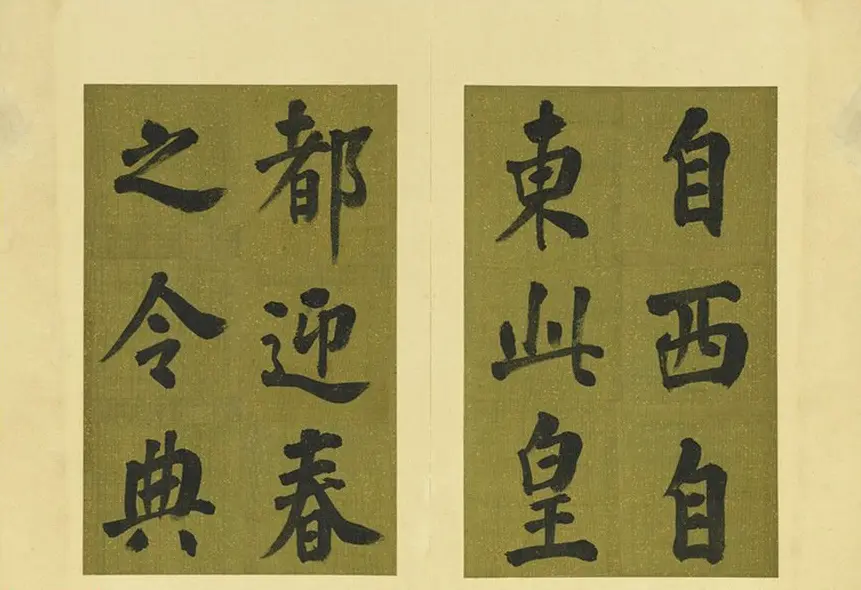 自西自
東此皇
都迎春
之令典